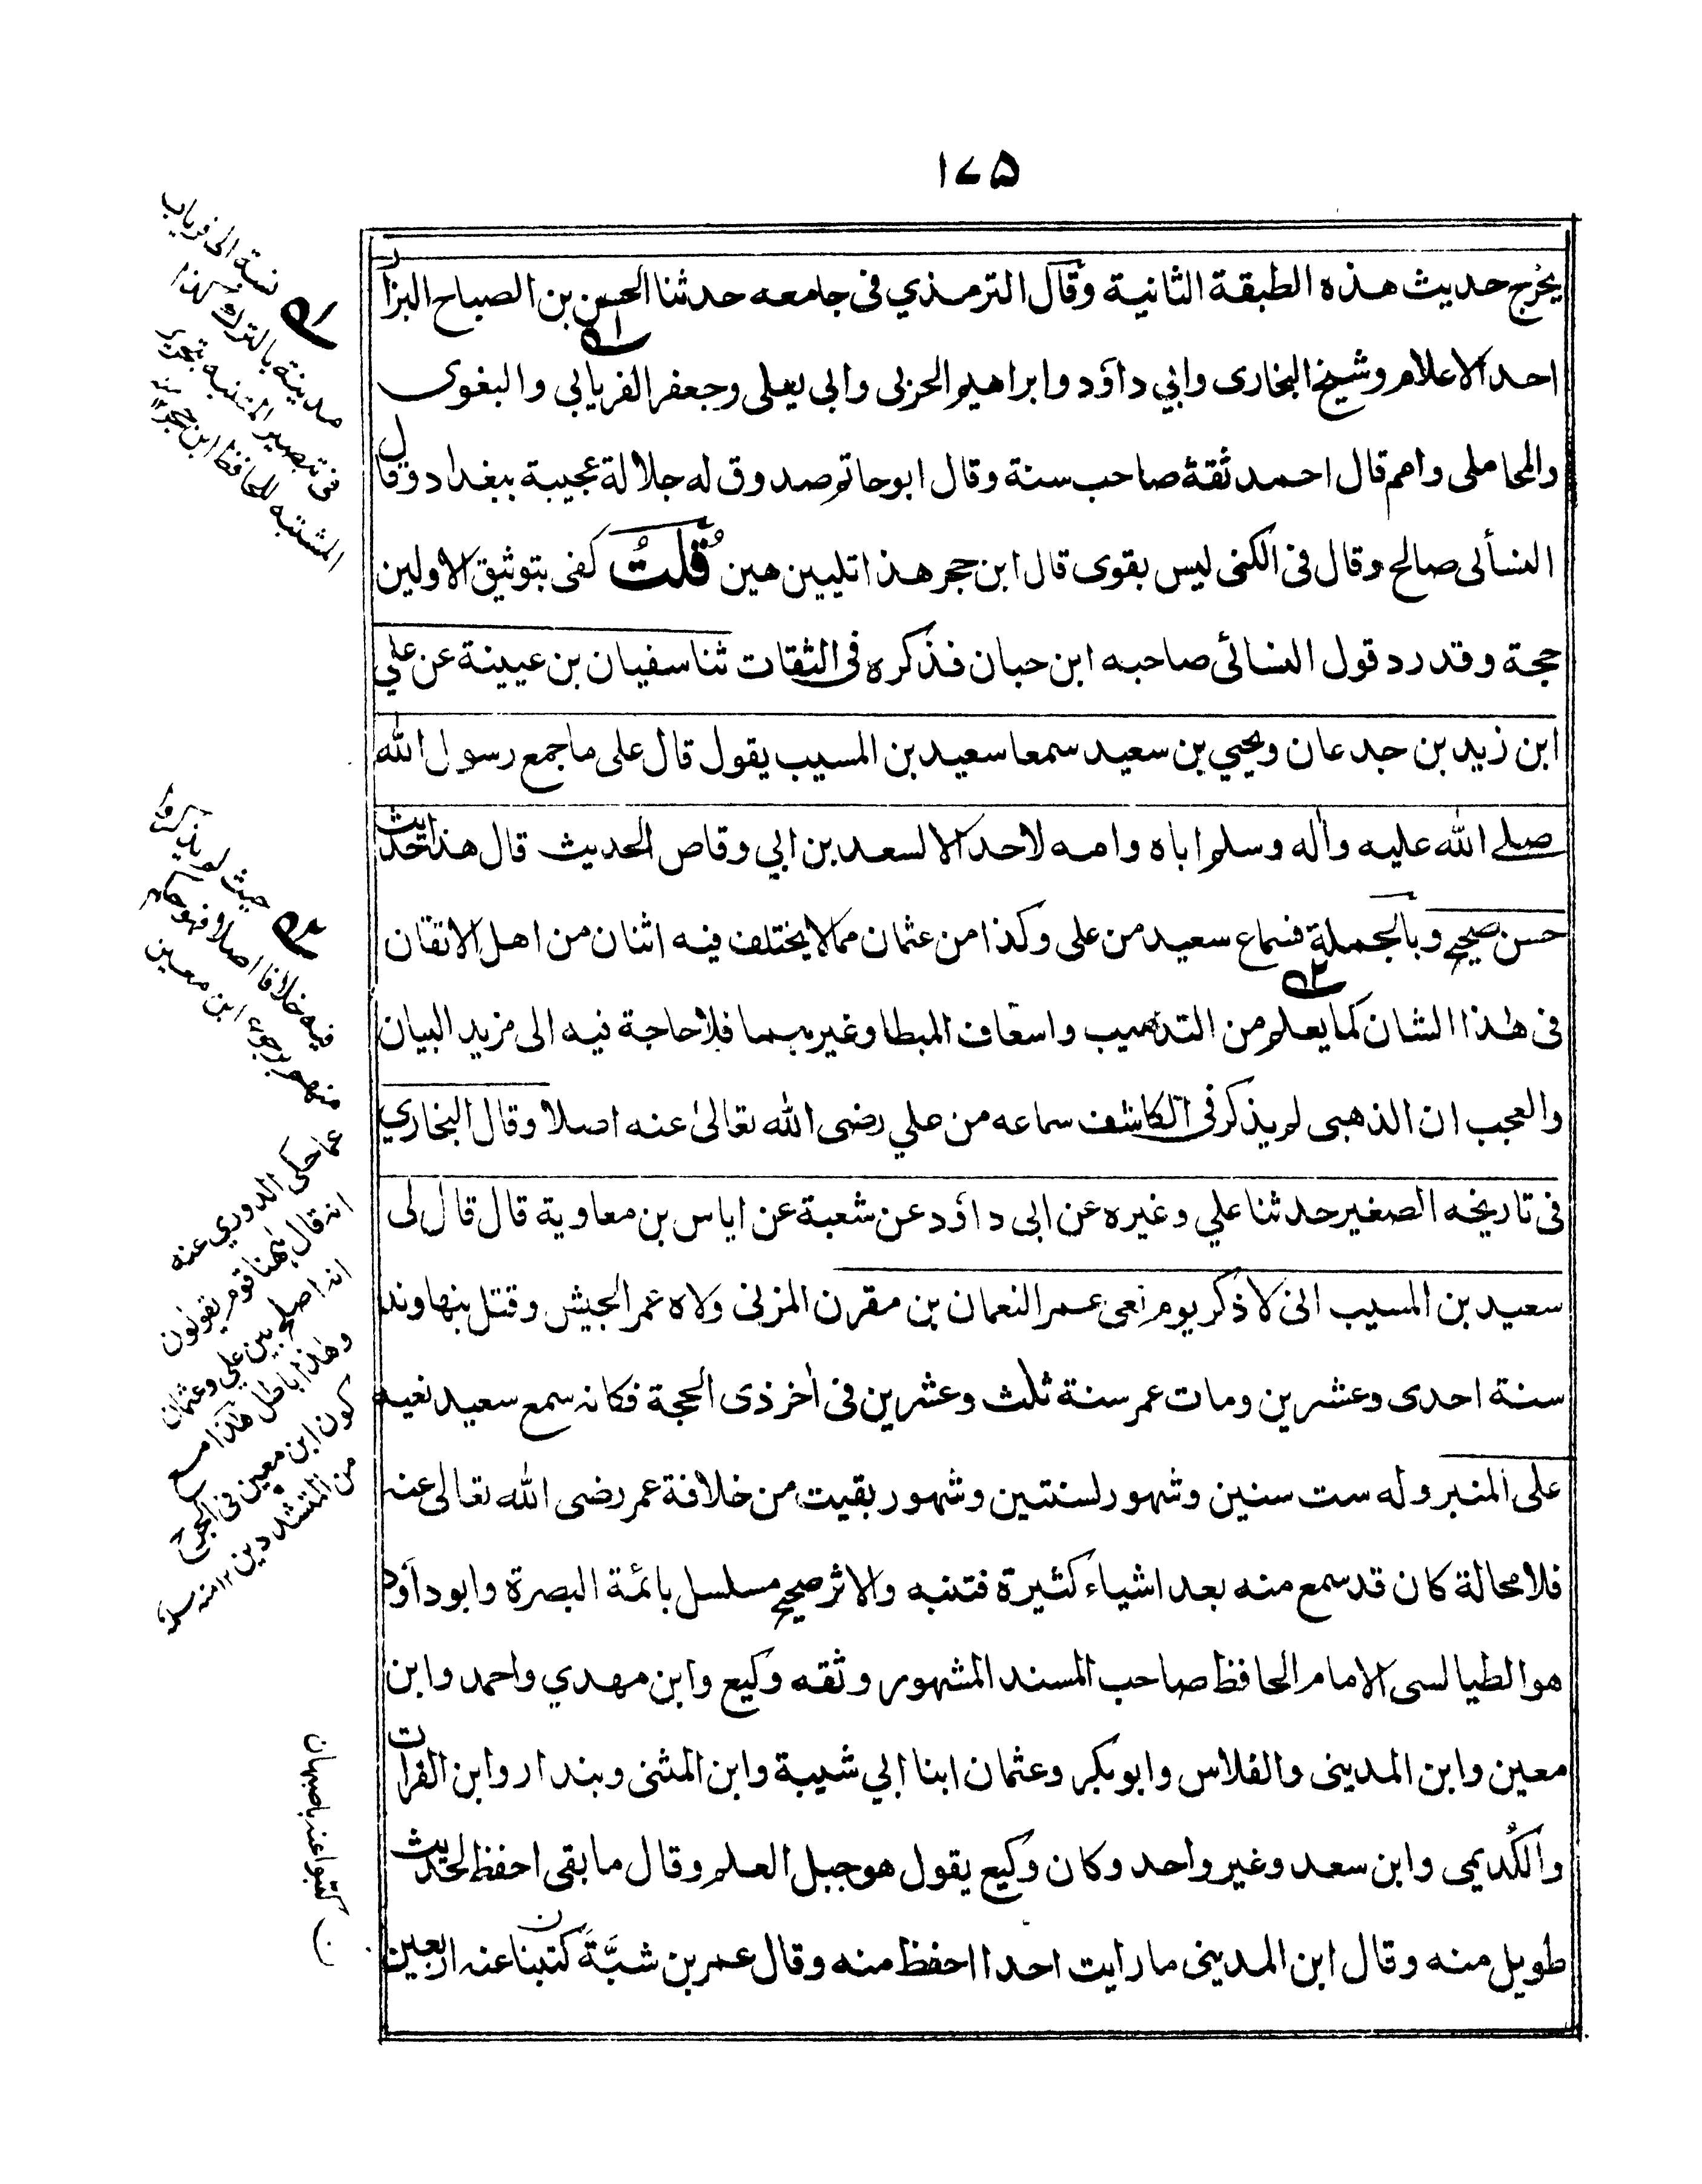 ١٧٥
يخرج حديث هذه الطبقة الثانية وقال الترمذي فى جامعه حدثنا الحسن بن الصباح البزار
احد الاعلام وشيخ البخارى وابي داؤد وابراهيم الحربى وابى يعلى وجعفر الفريابي والبغوى
والمحاملى وامم قال احمد ثقة صاحب سنة وقال ابو حاتم صدوق له جلالة عجيبة ببغداد وقال
النسائى صالح وقال فى الكنى ليس بقوى قال ابن حجر هذا تليين هين قُلتُ كفى بتوثيق الاولين
حجة وقد رد قول النسائى صاحبه ابن حبان فذكره فى الثقات ثنا سفيان بن عيينة عن علي
ابن زيد بن جدعان ويحيي بن سعيد سمعا سعيد بن المسيب يقول قال على ما جمع رسول الله
صلى الله عليه واله وسلم اباه وامه لاحد الا لسعد بن ابي وقاص الحديث قال هذا حديث
حسن صحيح وبالجملة فسماع سعيد من على وكذا من عثمان مما لا يختلف فيه اثنان من اهل الاتقان
فى هذا الشان كما يعلم من التذهيب واسعاف المبطا وغيرهما فلا حاجة فيه الى مزيد البيان
والعجب ان الذهبى لم يذكر فى الكاشف سماعه من علي رضى الله تعالىٰ عنه اصلا وقال البخاري
فى تاريخه الصغير حدثنا علي وغيره عن ابى داؤد عن شعبة عن اياس بن معاوية قال قال لى
سعيد بن المسيب انى لاذكر يوم نعى عمر النعمان بن مقرن المزنى ولاه عمر الجيش وقتل بنهاوند
سنة احدى وعشرين ومات عمر سنة ثلث وعشرين فى اٰخر ذى الحجة فكانه سمع سعيد نعيه
على المنبر وله ست سنين وشهور لسنتين وشهور بقيت من خلافة عمر رضى الله تعالى عنه
فلا محالة كان قد سمع منه بعد اشياء كثيرة فتنبه والاثر صحيح مسلسل بائمة البصرة وابو داؤد
هو الطيالسى الامام الحافظ صاحب المسند المشهور وثقه وكيع وابن مهدي واحمد وابن
معين وابن المدينى والفلاس وابو بكر وعثمان ابنا ابي شيبة وابن المثنى وبندار وابن الفرات
والكُديمى وابن سعد وغير واحد وكان وكيع يقول هو جبل العلم وقال ما بقى احفظ لحديث
طويل منه وقال ابن المدينى ما رايت احدا احفظ منه وقال عمر بن شبَّةَ كتبنا عنه اربعين
نسبة الى فرياب
مدينة بالترك هكذا
فى تبصير المنتبه بتحرير
المشتبه للحافظ ابن حجر ١٢
حيث لم يذكروا
فيه خلافا اصلا وفهو حاكم
منهم ابن معين
عما حكى الدوري عنه
انه قال ههنا قوم يقولون
انه اصلح بين علي وعثمان
وهذا باطل هذا مع
كون ابن معين فى الجرح
من المتشددين ١٢ منه سلمه
ن كتبوا عنه باصبهان